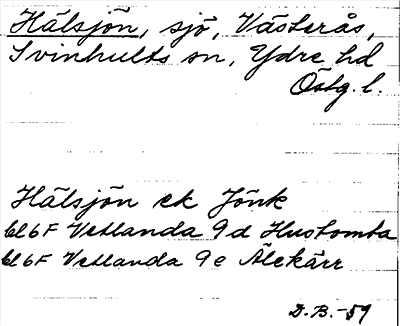 Hälsjön, sjö, Västerås,
Svinhults sn, Ydre hd
Östg. l.
Hälsjön ek Jönk
bl 6F Vetlanda 9d Hustomta
bl 6F Vetlanda 9e Älekärr
D.B.-59